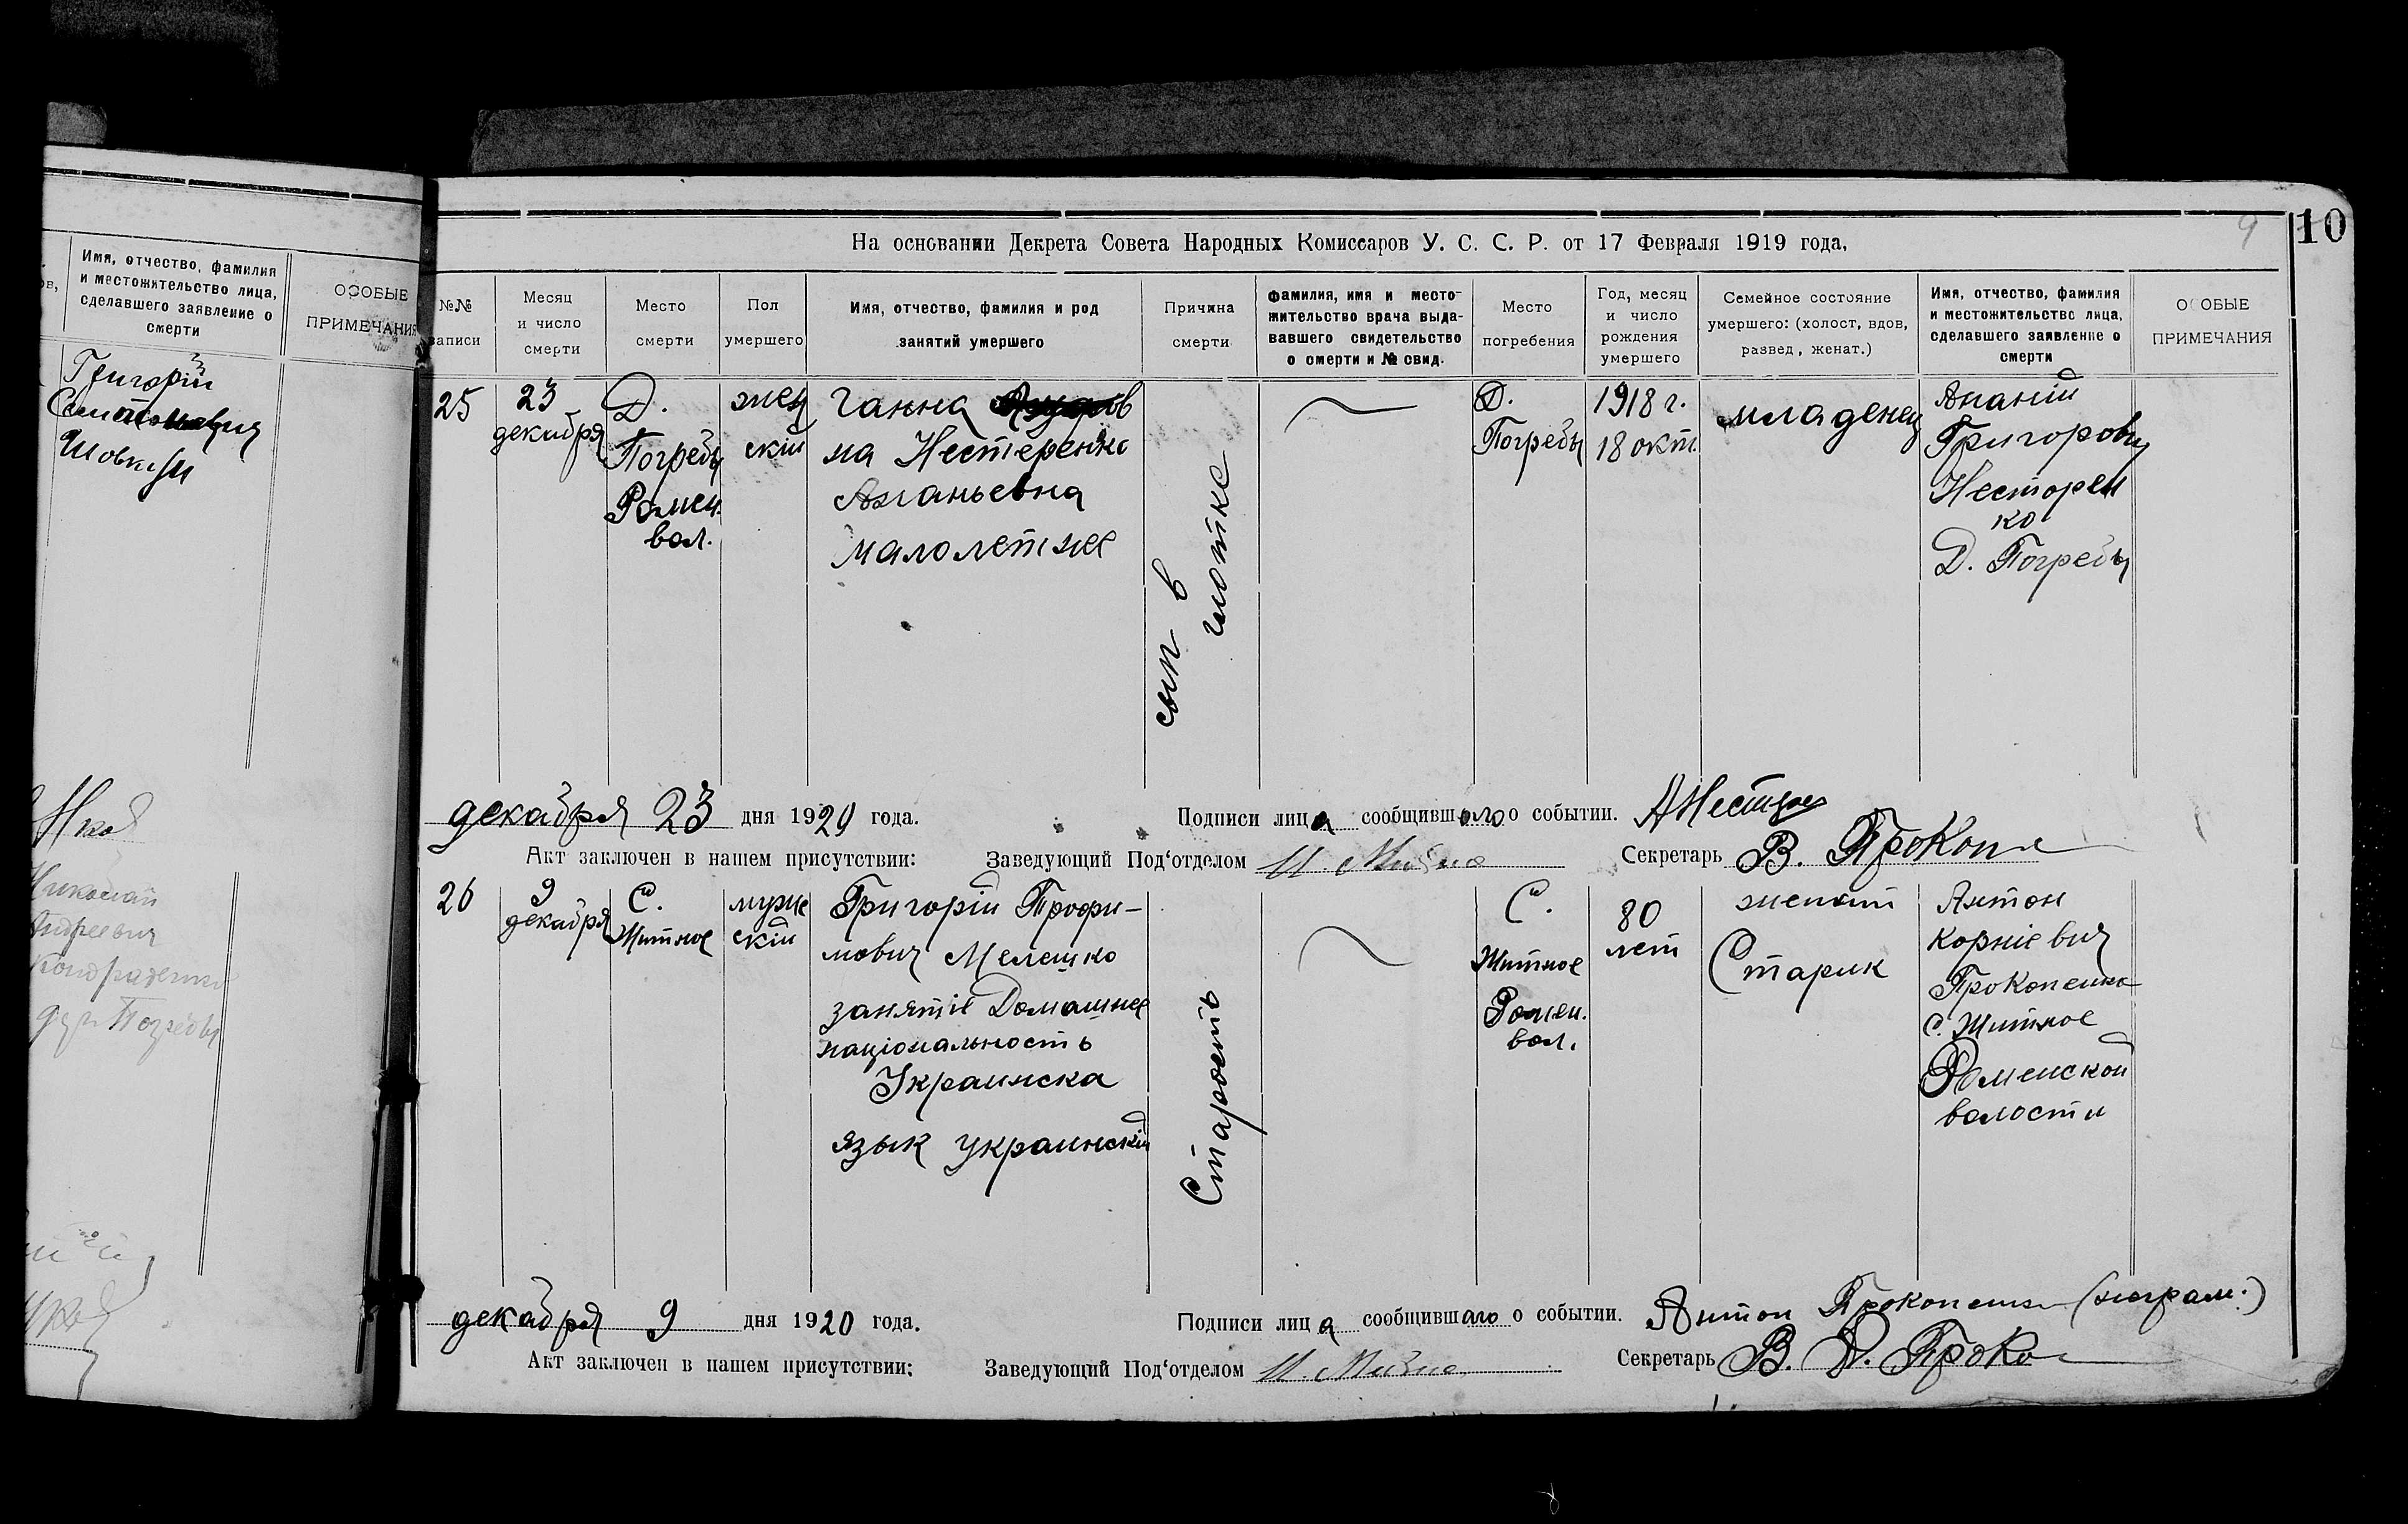 Имя, отчество, фамилия
и местожительство лица,
сделавшего заявление о
смерти
ОСОБЫЕ
ПРИМЕЧАНИЯ
Григорій
10
9
На основании Декрета Совета Народных Комиссаров У. С. С. Р. от 17 Февраля 1919 года,
№№
записи
Месяц
и число
смерти
Место
смерти
Пол
умершего
Имя, отчество, фамилия и род
занятий умершего
Причина
смерти
фамилия, имя и место-
жительство врача выда-
вавшего свидетельство
о смерти и № свид.
Место
погребения
Год, месяц
и число
рождения
умершего
Семейное состояние
умершего: (холост, вдов,
развед, женат.)
Имя, отчество, фамилия
и местожительство лица,
сделавшего заявление о
смерти
ОСОБЫЕ
ПРИМЕЧАНИЯ
25
23
декабря
Д.
Погребы
Ромен.
вол.
жен
скій
Ганна
на Нестеренко
Ананьевна
малолетнее
сып в
глотке
Д.
Погребы
1918 г.
18 окт.
младенец
Ананій
Григорович
Несторен
ко
Д. Погребы
декабря 23 дня 1920 года.
Подписи лица сообщившого о событии.
Акт заключен в нашем присутствии:
Заведующий Под‘отделом
Секретарь В.
26
9
декабря
С.
Житное
муже
скій
Григорій Трофи-
мович Мелешко
занятіе Домашнее
національность
Украинска
язык украинскій
Старость
С.
Житное
Ромен.
вол.
80
лет
женат
Старик
Антон
Корніевич
Прокопенко
с. Житное
Роменской
волости
декабря 9 дня 1920 года.
Подписи лица сообщившаго о событии. Антон Прокопенко (неграм.)
Акт заключен в нашем присутствии:
Заведующий Под‘отделом
Секретарь В. Д. Проко
Николай
Андреевич
Кондратенко
дер. Погребы